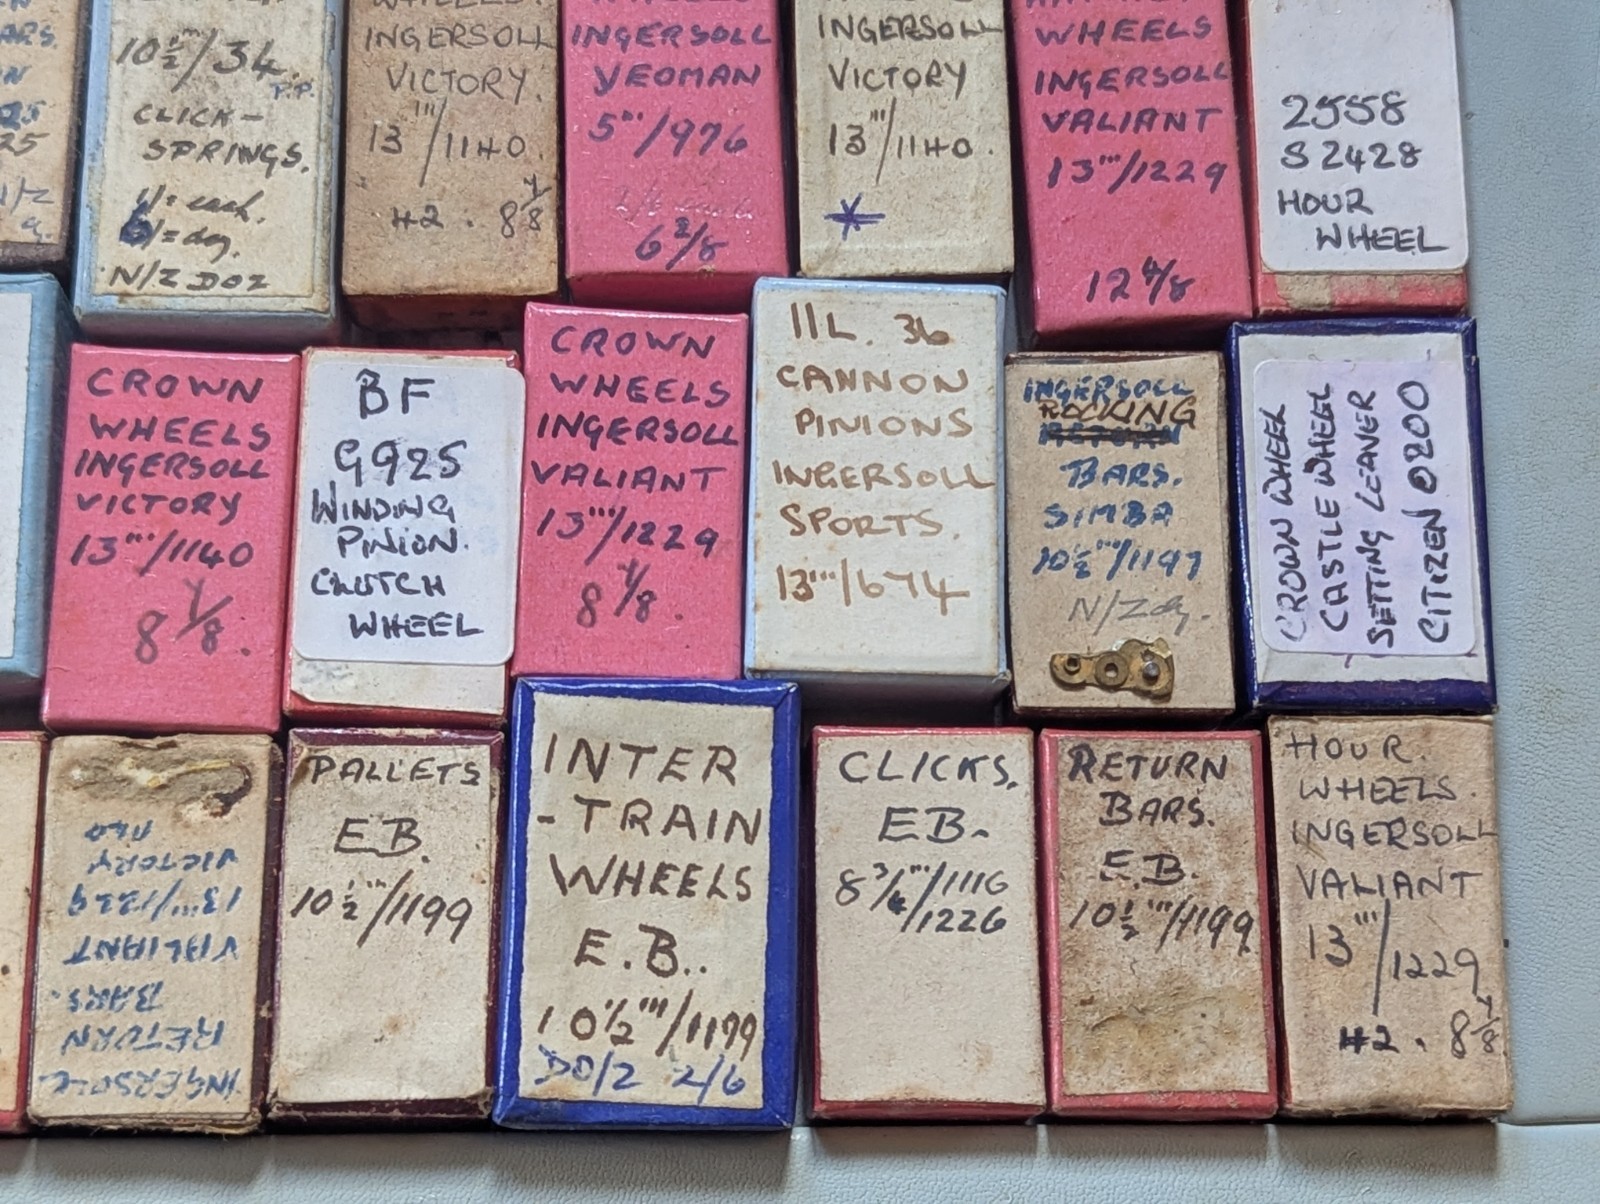 10½'''/34.
P.P.
CLICK-
SPRINGS.
1/= each.
6/= dz.
N/Z DOZ
INGERSOLL
VICTORY.
13'''/1140.
#2. 8 1/8
INGERSOLL
YEOMAN
5'''/976
6 2/8
INGERSOLL
VICTORY
13'''/1140.
WHEELS
INGERSOLL
VALIANT
13'''/1229
12 4/8
2558
S 2428
HOUR
WHEEL
CROWN
WHEELS
INGERSOLL
VICTORY
13'''/1140
8 1/8.
BF
G925
WINDING
PINION.
CLUTCH
WHEEL
CROWN
WHEELS
INGERSOLL
VALIANT
13'''/1229
8 1/8.
11L. 36
CANNON
PINIONS
INGERSOLL
SPORTS.
13'''/674
INGERSOLL
ROCKING
BARS.
SIMBA
10½'''/1197
N/Z dz.
CROWN WHEEL
CASTLE WHEEL
SETTING LEAVER
CITIZEN 0200
INGERSOLL
RETURN
BARS.
VALIANT
13'''/1229
VICTORY
PALLETS
E.B.
10½'''/1199
INTER
-TRAIN
WHEELS
E.B..
10½'''/1199
DO/Z 2/6
CLICKS.
E.B.
8¾'''/1116
/1226
RETURN
BARS.
E.B.
10½'''/1199
HOUR.
WHEELS.
INGERSOLL
VALIANT
13'''/1229
#2. 8 1/8